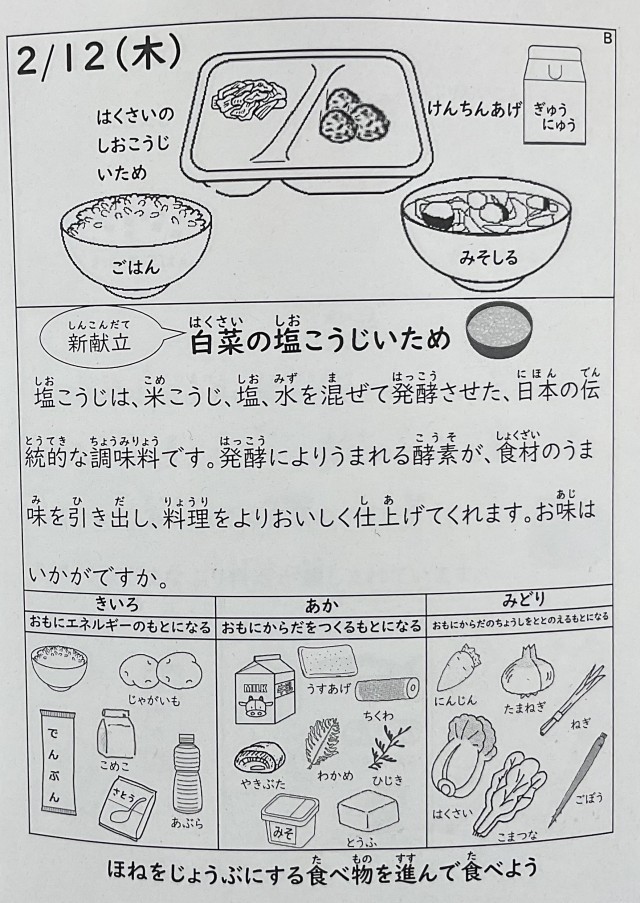 B
2/12(木)
はくさいの
しおこうじ
いため
けんちんあげ
ぎゅう
にゅう
ごはん
みそしる
しんこんだて
新献立
はくさい しお
白菜の塩こうじいため
しお こめ しお みず ま はっこう にほん でん
塩こうじは、米こうじ、塩、水を混ぜて発酵させた、日本の伝
とうてき ちょうみりょう はっこう こうそ しょくざい
統的な調味料です。発酵によりうまれる酵素が、食材のうま
み ひ だ りょうり し あ あじ
味を引き出し、料理をよりおいしく仕上げてくれます。お味は
いかがですか。
きいろ
おもにエネルギーのもとになる
じゃがいも
でんぷん
こめこ
さとう
あぶら
あか
おもにからだをつくるもとになる
MILK
うすあげ
ちくわ
やきぶた
わかめ
ひじき
みそ
とうふ
みどり
おもにからだのちょうしをととのえるもとになる
にんじん
たまねぎ
ねぎ
はくさい
こまつな
ごぼう
た もの すす た
ほねをじょうぶにする食べ物を進んで食べよう